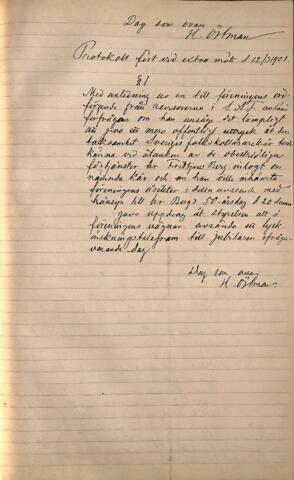 Dag som ovan
H. Öhman
Protokoll fört vid extra möte d. 12/3 1901.
§ 1
Med anledning av en till föreningens ord-
förande från revisorerna i S. A. F. ankomna
förfrågan om han ansåge det lämpligt
att giva ett mera offentligt uttryck åt den
tacksamhet Sveriges folkskollärarekår
känna vid åtanken av de obestridliga
förtjänster hr Fridtjuv Berg inlagt om
nämnda kår och om han ville inhämta
föreningens åsikter i detta avseende med
hänsyn till hr Bergs 50-årsdag d. 20 dennes
gavs uppdrag åt styrelsen att å
föreningens vägnar avsända ett lyck-
önskningstelegram till jubilaren ifråga-
varande dag.
Dag som ovan
H. Öhman.